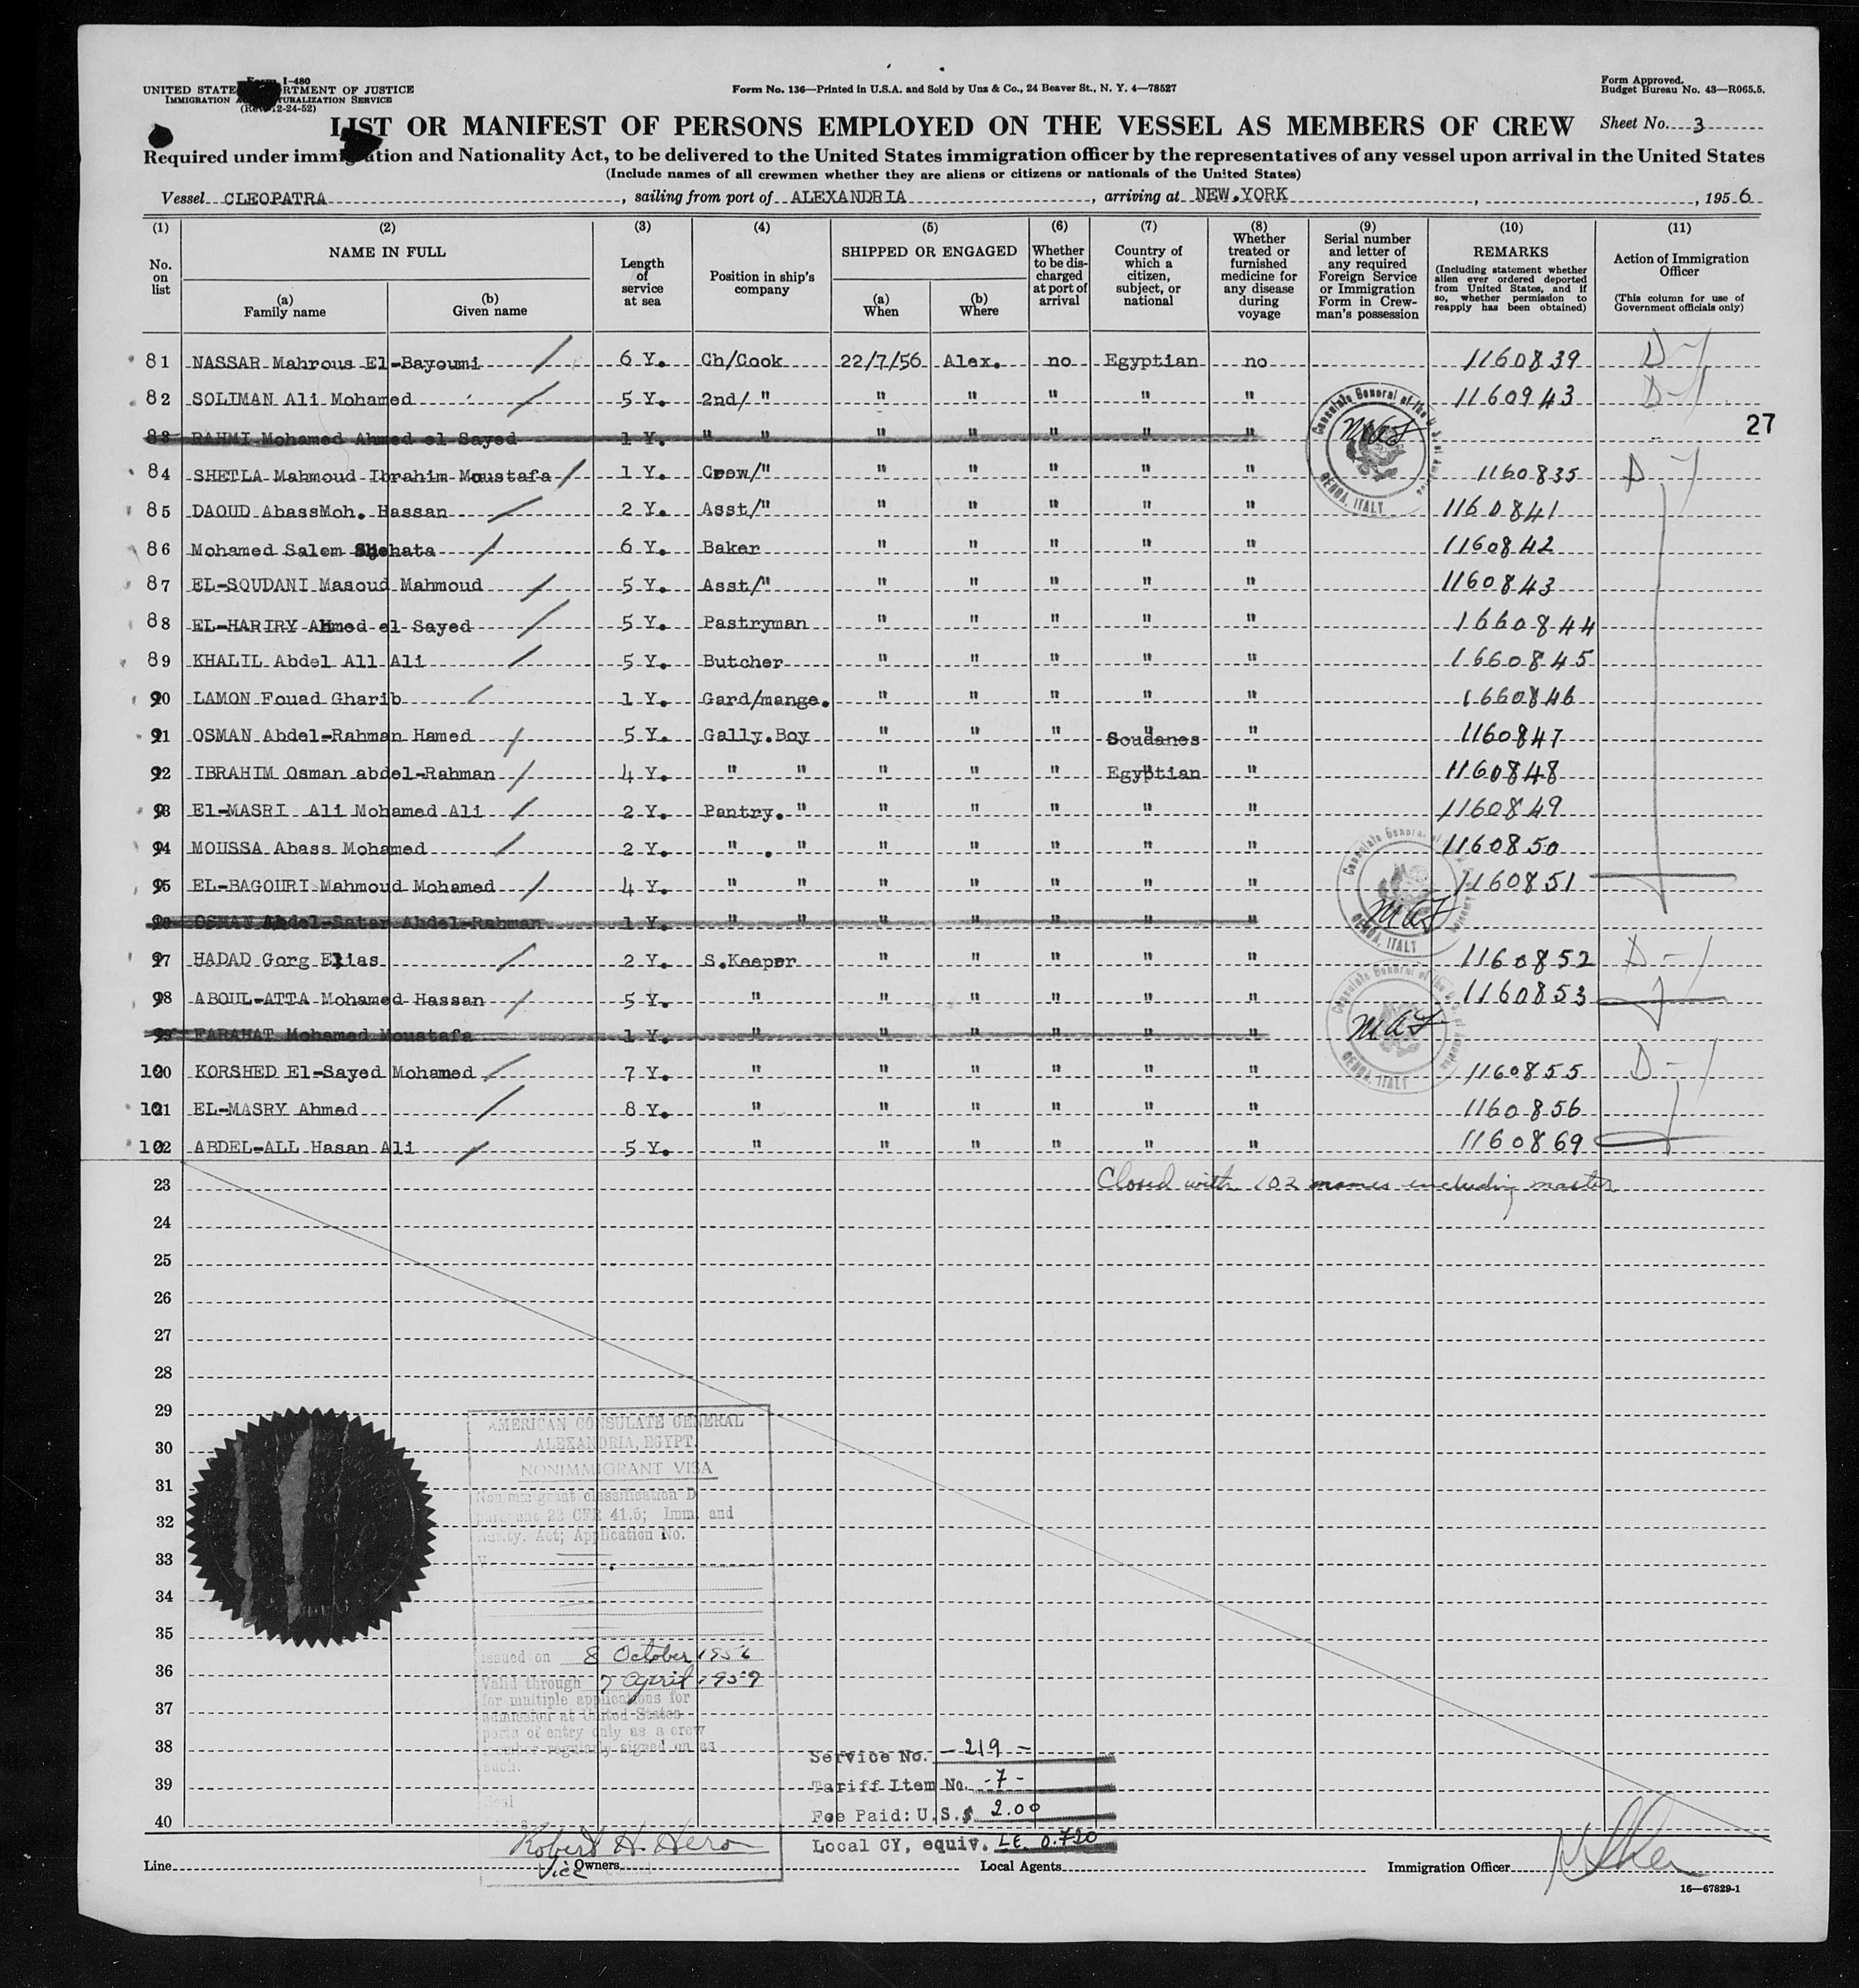 Form I-480
UNITED STATES DEPARTMENT OF JUSTICE
IMMIGRATION AND NATURALIZATION SERVICE
(Rev. 12-24-52)
Form No. 136—Printed in U.S.A. and Sold by Unz & Co., 24 Beaver St., N. Y. 4—78527
Form Approved.
Budget Bureau No. 43—R065.5.
LIST OR MANIFEST OF PERSONS EMPLOYED ON THE VESSEL AS MEMBERS OF CREW
Sheet No. 3
Required under immigration and Nationality Act, to be delivered to the United States immigration officer by the representatives of any vessel upon arrival in the United States
(Include names of all crewmen whether they are aliens or citizens or nationals of the United States)
Vessel CLEOPATRA, sailing from port of ALEXANDRIA, arriving at NEW.YORK, , 1956
(1) (2) (3) (4) (5) (6) (7) (8) (9) (10) (11)
No. on list
NAME IN FULL
(a) Family name
(b) Given name
Length of service at sea
Position in ship's company
SHIPPED OR ENGAGED
(a) When
(b) Where
Whether to be discharged at port of arrival
Country of which a citizen, subject, or national
Whether treated or furnished medicine for any disease during voyage
Serial number and letter of any required Foreign Service or Immigration Form in Crewman's possession
REMARKS
(Including statement whether alien ever ordered deported from United States, and if so, whether permission to reapply has been obtained)
Action of Immigration Officer
(This column for use of Government officials only)
81 NASSAR Mahrous El-Bayoumi 6 Y. Ch/Cook 22/7/56 Alex. no Egyptian no 1160839 D-1
82 SOLIMAN Ali Mohamed 5 Y. 2nd/ " " " " " " 1160943 D-1
27
83 RAHMI Mohamed Ahmed el Sayed 1 Y. " " " " " " "
84 SHETLA Mahmoud Ibrahim Moustafa 1 Y. Crew/" " " " " " 1160835 D-1
85 DAOUD AbassMoh. Hassan 2 Y. Asst/" " " " " " 1160841
86 Mohamed Salem Shehata 6 Y. Baker " " " " " 1160842
87 EL-SOUDANI Masoud Mahmoud 5 Y. Asst/" " " " " " 1160843
88 EL-HARIRY Ahmed el Sayed 5 Y. Pastryman " " " " " 1660844
89 KHALIL Abdel All Ali 5 Y. Butcher " " " " " 1660845
90 LAMON Fouad Gharib 1 Y. Gard/mange. " " " " " 1660846
91 OSMAN Abdel-Rahman Hamed 5 Y. Gally.Boy " " " Soudanes " 1160847
92 IBRAHIM Osman abdel-Rahman 4 Y. " " " " " Egyptian " 1160848
93 El-MASRI Ali Mohamed Ali 2 Y. Pantry. " " " " " " 1160849
94 MOUSSA Abass Mohamed 2 Y. " . " " " " " " 1160850
95 EL-BAGOURI Mahmoud Mohamed 4 Y. " " " " " " " 1160851
96 OSMAN Abdel-Satar Abdel-Rahman 1 Y. " " " " " " "
97 HADAD Gorg Elias 2 Y. S.Keeper " " " " " 1160852 D-1
98 ABOUL-ATTA Mohamed Hassan 5 Y. " " " " " " 1160853
99 FARAHAT Mohamed Moustafa 1 Y. " " " " " "
100 KORSHED El-Sayed Mohamed 7 Y. " " " " " " 1160855 D-1
101 EL-MASRY Ahmed 8 Y. " " " " " " 1160856
102 ABDEL-ALL Hasan Ali 5 Y. " " " " " " 1160869
Consulate General of the U.S. of America
GENOA, ITALY
MAF
Consulate General of
America
GENOA, ITALY
MAF
Consulate General of the U.S. of America
GENOA, ITALY
MAF
23 Closed with 102 names including master
24
25
26
27
28
29
30
31
32
33
34
35
36
37
38
39
40
AMERICAN CONSULATE GENERAL
ALEXANDRIA, EGYPT.
NONIMMIGRANT VISA
Nonimmigrant classification D
pursuant 22 CFR 41.5; Imm. and
Natlty. Act; Application No.
V
Issued on 8 October 1956
Valid through 7 April 1957
for multiple applications for
admission at United States
ports of entry only as a crew
member regularly signed on as
such.
Seal
Robert H. Hero
Vice
Service No. - 219 -
Tariff Item No. - 7 -
Fee Paid: U.S.$ 2.00
Local CY, equiv. LE. 0.720
Line Owners Local Agents Immigration Officer
16—67829-1